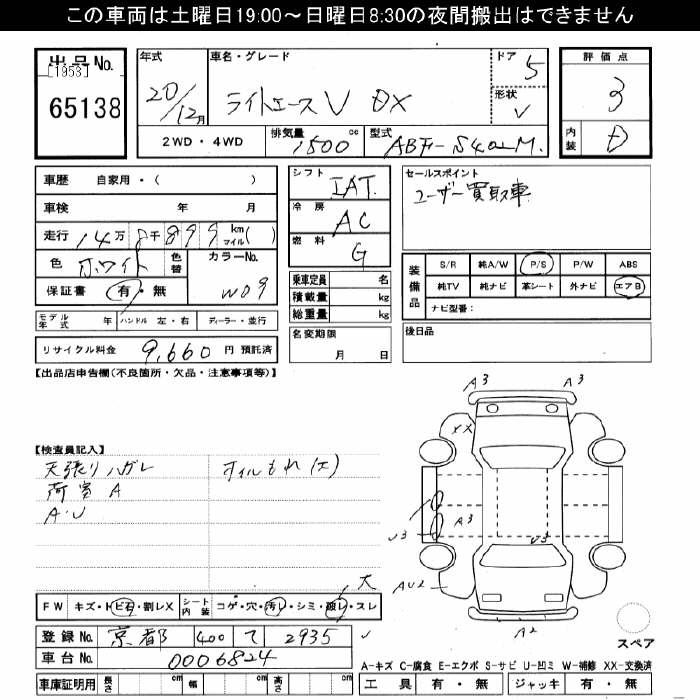 この車両は土曜日19:00〜日曜日8:30の夜間搬出はできません
出品No.
[1953]
65138
年式
20/12月
車名・グレード
ライトエースV DX
ドア
5
形状
V
評価点
3
内装
D
2WD・4WD
排気量
1500 cc
型式
ABF-S402M.
車歴 自家用・( )
車検 年 月
走行 14万8千899 km マイル( )
色 ホワイト 色替
カラーNo.
W09
保証書 有・無
モデル年式 年 ハンドル 左・右 ディーラー・並行
リサイクル料金 9,660 円 預託済
シフト
IAT.
冷房
AC
燃料
G
乗車定員 名
積載量 kg
総重量 kg
名変期限
月 日
セールスポイント
ユーザー買取車
装備品
S/R 純A/W P/S P/W ABS
純TV 純ナビ 革シート 外ナビ エアB
ナビ型番:
後日品
【出品店申告欄(不良箇所・欠品・注意事項等)】
【検査員記入】
天張りハガレ オイルもれ(エ)
荷室A
A・U
A3 A3
XX
A3
U3
U3
AU2
A2
大
FW キズ・トビ石・割レX シート内装 コゲ・穴・汚レ・シミ・破レ・スレ
登録No. 京都 400 て 2935
車台No. 0006824
車庫証明用 長さ cm 幅 cm 高さ cm
スペア
A-キズ C-腐食 E-エクボ S-サビ U-凹ミ W-補修 XX-交換済
工具 有・無 ジャッキ 有・無